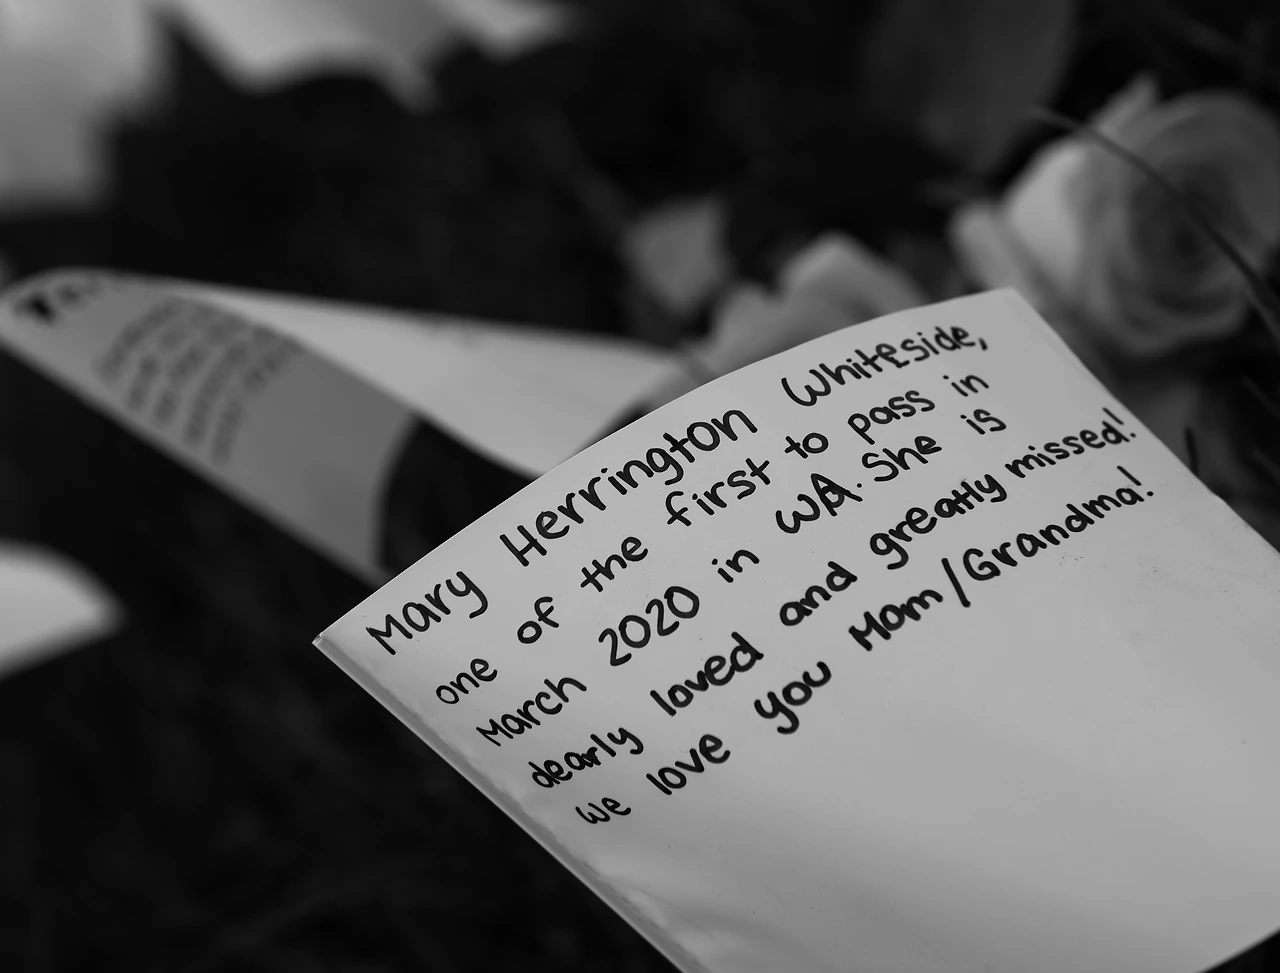 Mary Herrington Whiteside,
one of the first to pass in
March 2020 in WA. She is
dearly loved and greatly missed!
we love you Mom/Grandma!